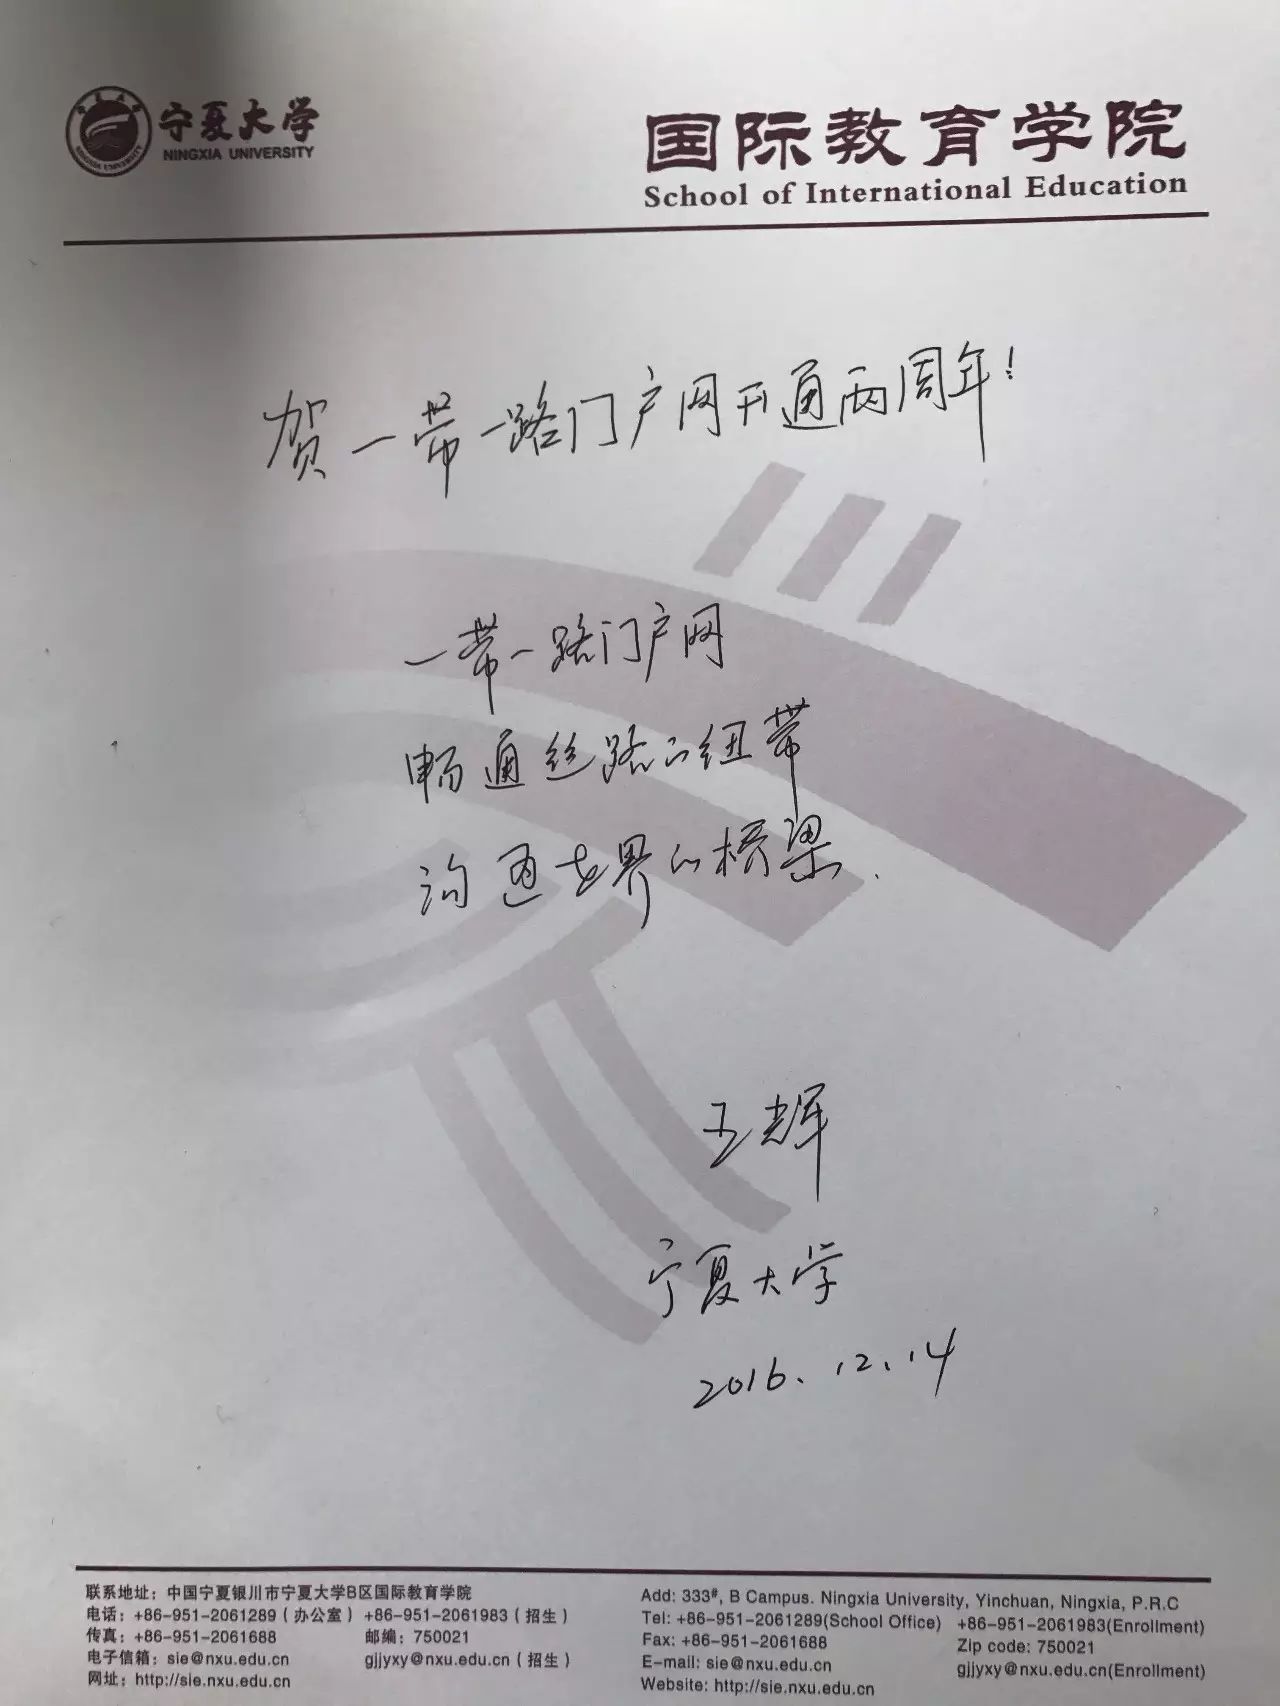 宁夏大学
NINGXIA UNIVERSITY
国际教育学院
School of International Education
贺一带一路门户网开通两周年!
一带一路门户网
畅通丝路的纽带
沟通世界的桥梁.
王辉
宁夏大学
2016、12、14
联系地址：中国宁夏银川市宁夏大学B区国际教育学院
电话：+86-951-2061289（办公室） +86-951-2061983（招生）
传真：+86-951-2061688 邮编：750021
电子信箱：sie@nxu.edu.cn gjjyxy@nxu.edu.cn（招生）
网址：http://sie.nxu.edu.cn
Add: 333#, B Campus. Ningxia University, Yinchuan, Ningxia, P.R.C
Tel: +86-951-2061289(School Office) +86-951-2061983(Enrollment)
Fax: +86-951-2061688 Zip code: 750021
E-mail: sie@nxu.edu.cn gjjyxy@nxu.edu.cn(Enrollment)
Website: http://sie.nxu.edu.cn